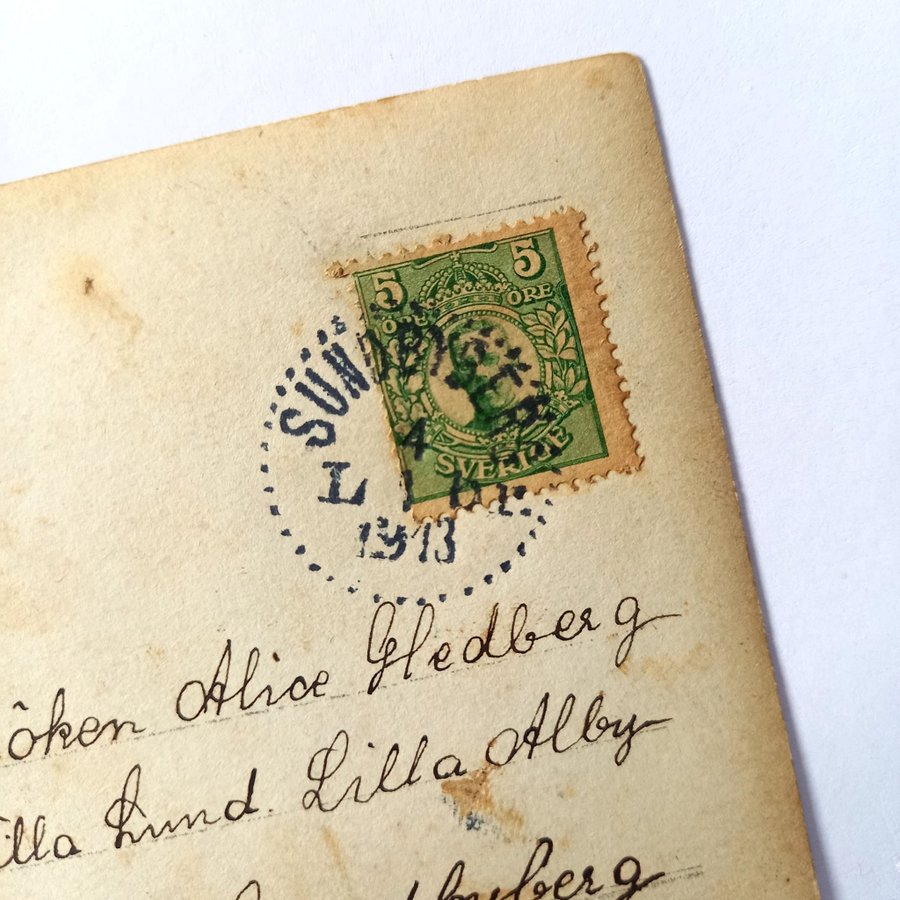 5 5
ÖRE ÖRE
SVERIGE
SUNDBYBERG
4
L
1913
öken Alice Hedberg
illa Lund. Lilla Alby
byberg